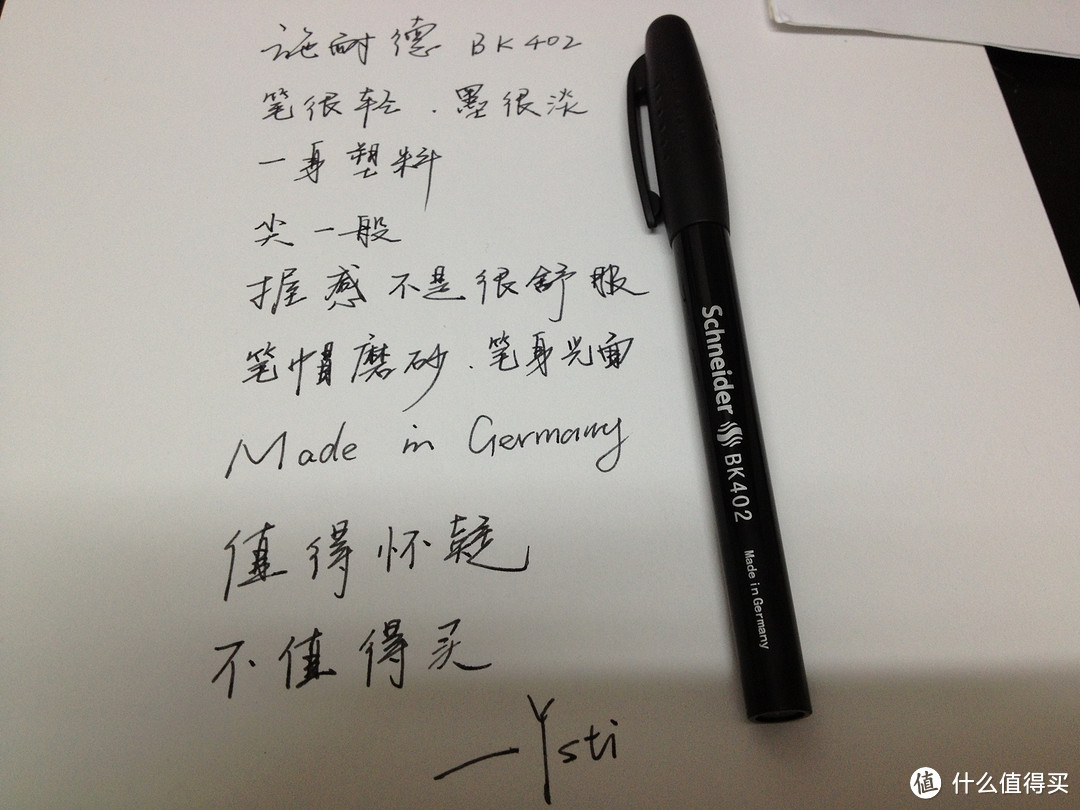 施耐德 BK402
笔很轻.墨很淡
一身塑料
尖一般
握感不是很舒服
笔帽磨砂.笔身光面
Made in Germany
值得怀疑
不值得买
—Ysti
Schneider BK402 Made in Germany
值 什么值得买